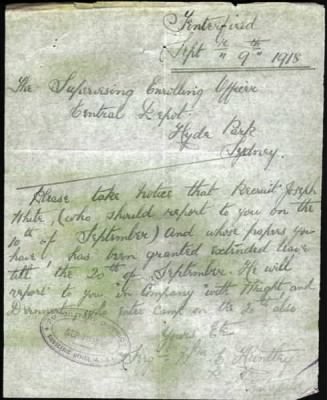 Tenterfield
Sept 9th 1918
The Supervising Enrolling Officer
Central Depot
Hyde Park
Sydney.
Please take notice that Recruit Joseph
White, (who should report to you on the
10th of September) And whose papers you
have, has been granted extended leave
till the 20th of September. He will
report to you "in Company" with Wright, and
who enter Camp on the 20th also
Yours Etc
Huntley